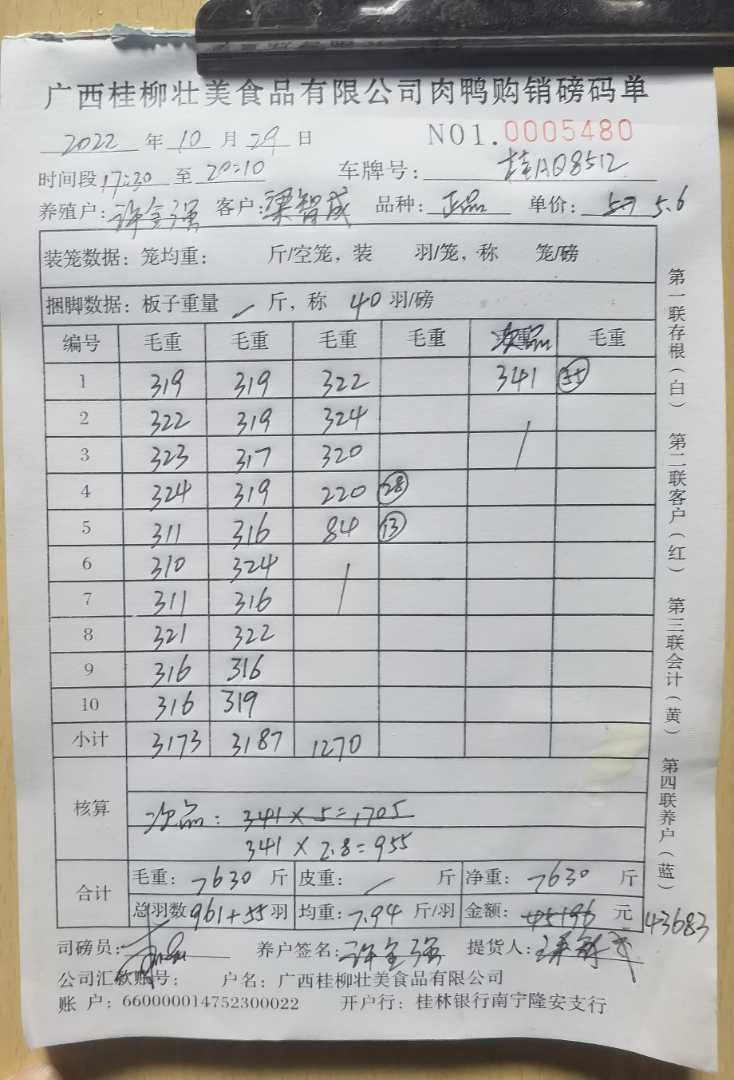 广西桂柳壮美食品有限公司肉鸭购销磅码单
2022 年 10 月 29 日 NO1.0005480
时间段 17:30 至 20:10 车牌号: 桂AQ8512
养殖户: 许全强 客户: 梁智成 品种: 正品 单价: 5.7 5.6
装笼数据: 笼均重: 斤/空笼, 装 羽/笼, 称 笼/磅
捆脚数据: 板子重量 / 斤, 称 40 羽/磅
编号 毛重 毛重 毛重 毛重 次品 毛重
1 319 319 322 341 55
2 322 319 324
3 323 317 320
4 324 319 220 28
5 311 316 84 13
6 310 324
7 311 316
8 321 322
9 316 316
10 316 319
小计 3173 3187 1270
核算
次品: 341 × 5 = 1705
341 × 2.8 = 955
合计
毛重: 7630 斤 皮重: / 斤 净重: 7630 斤
总羽数 961+55 羽 均重: 7.94 斤/羽 金额: 45196 元 43683
司磅员: 养户签名: 许全强 提货人:
公司汇款账号: 户名: 广西桂柳壮美食品有限公司
账 户: 660000014752300022 开户行: 桂林银行南宁隆安支行
第一联存根(白) 第二联客户(红) 第三联会计(黄) 第四联养户(蓝)